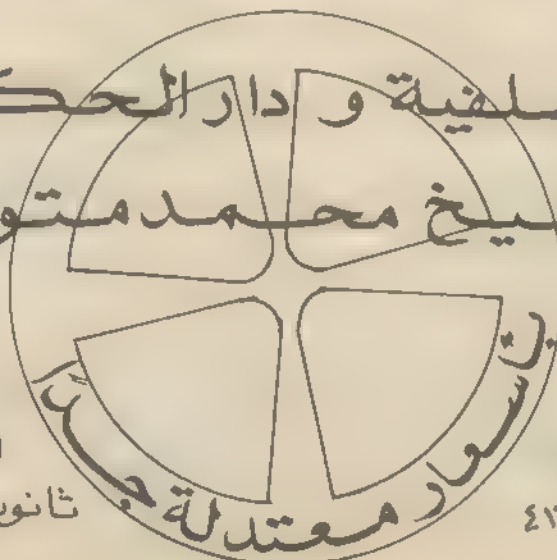 ـلفية و دار الحكـ
ـيخ محمد متو
بأسعار معتدلة جدًّا
ثانو
٤٢